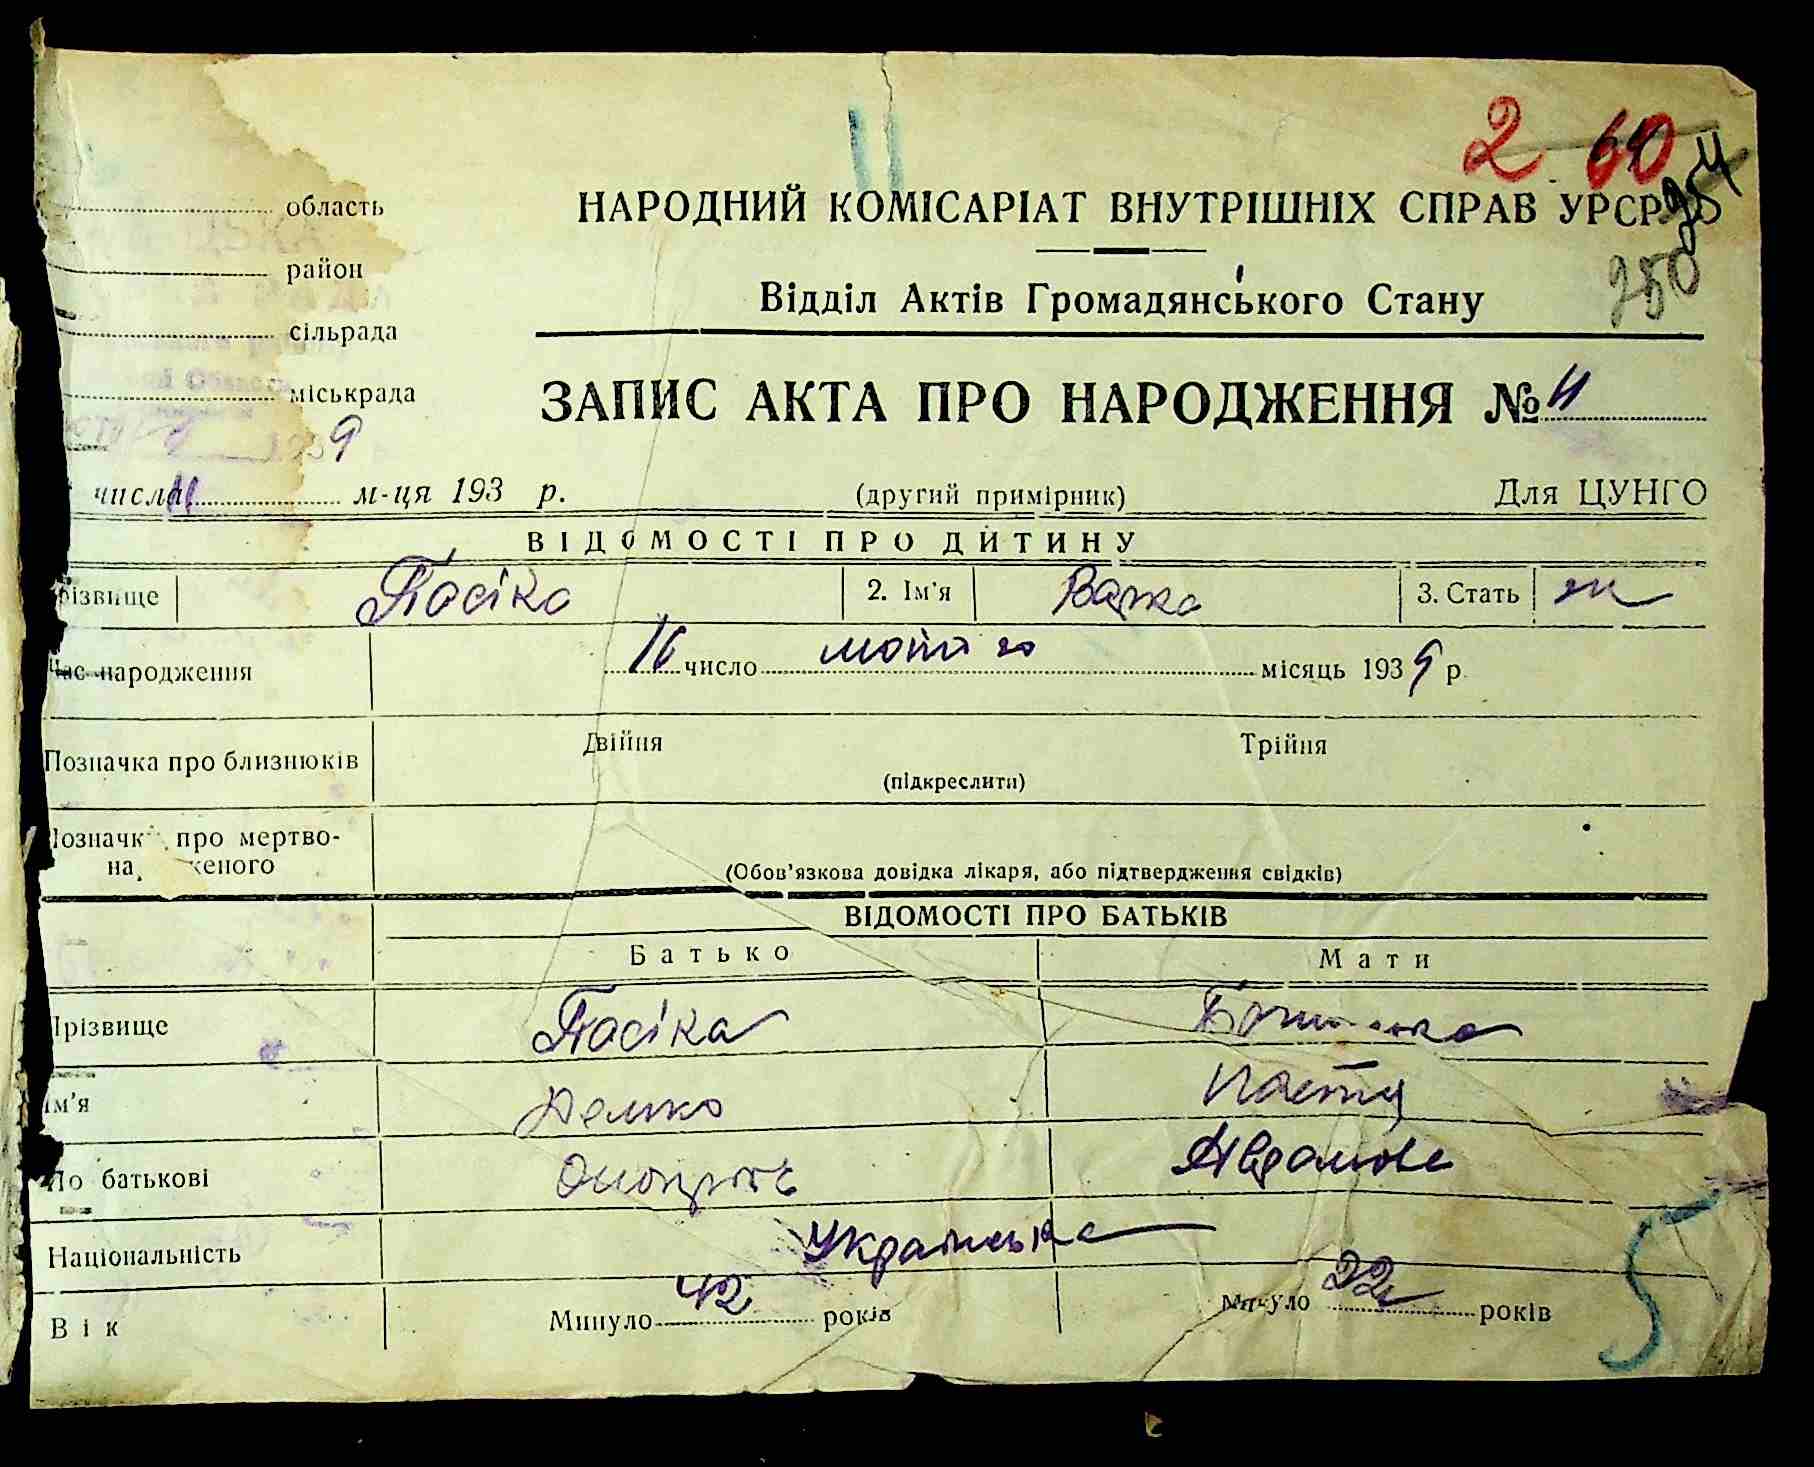 2 60
254
250
область
район
сільрада
міськрада
9
числа 11 м-ця 193 р.
НАРОДНИЙ КОМІСАРІАТ ВНУТРІШНІХ СПРАВ УРСР
Відділ Актів Громадянського Стану
ЗАПИС АКТА ПРО НАРОДЖЕННЯ № 11
(другий примірник) Для ЦУНГО
ВІДОМОСТІ ПРО ДИТИНУ
різвище Пасіка 2. Ім'я Варка 3. Стать ж
Час народження 16 число лютого місяць 1939 р.
Позначка про близнюків Двійня Трійня
(підкреслити)
Позначк про мертво-
на женого
(Обов'язкова довідка лікаря, або підтвердження свідків)
ВІДОМОСТІ ПРО БАТЬКІВ
Батько Мати
Прізвище Пасіка
Ім'я Демко Настя
По батькові
Національність Українська
Вік Минуло 42 років Минуло 22 років
5